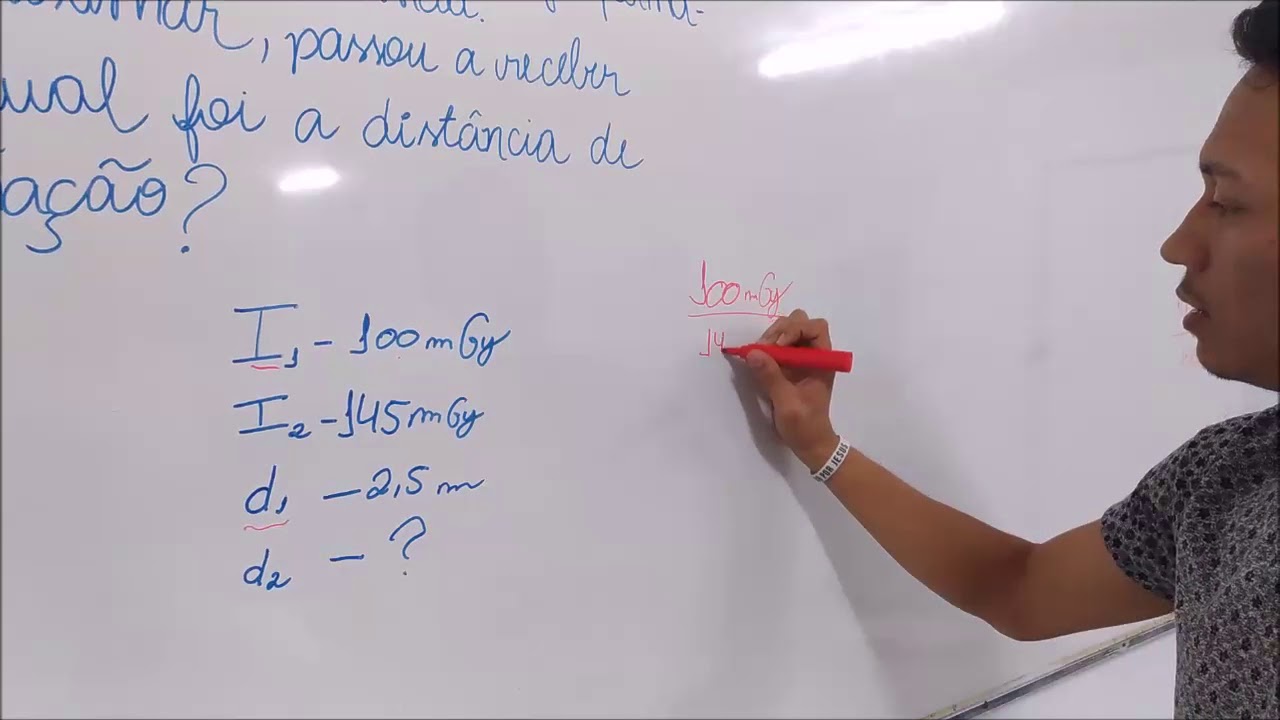 passou a receber
foi a distância de
ação?
I₁ - 100 mGy
I₂ - 145 mGy
d₁ - 2,5 m
d₂ - ?
100 mGy
14
POR JESUS